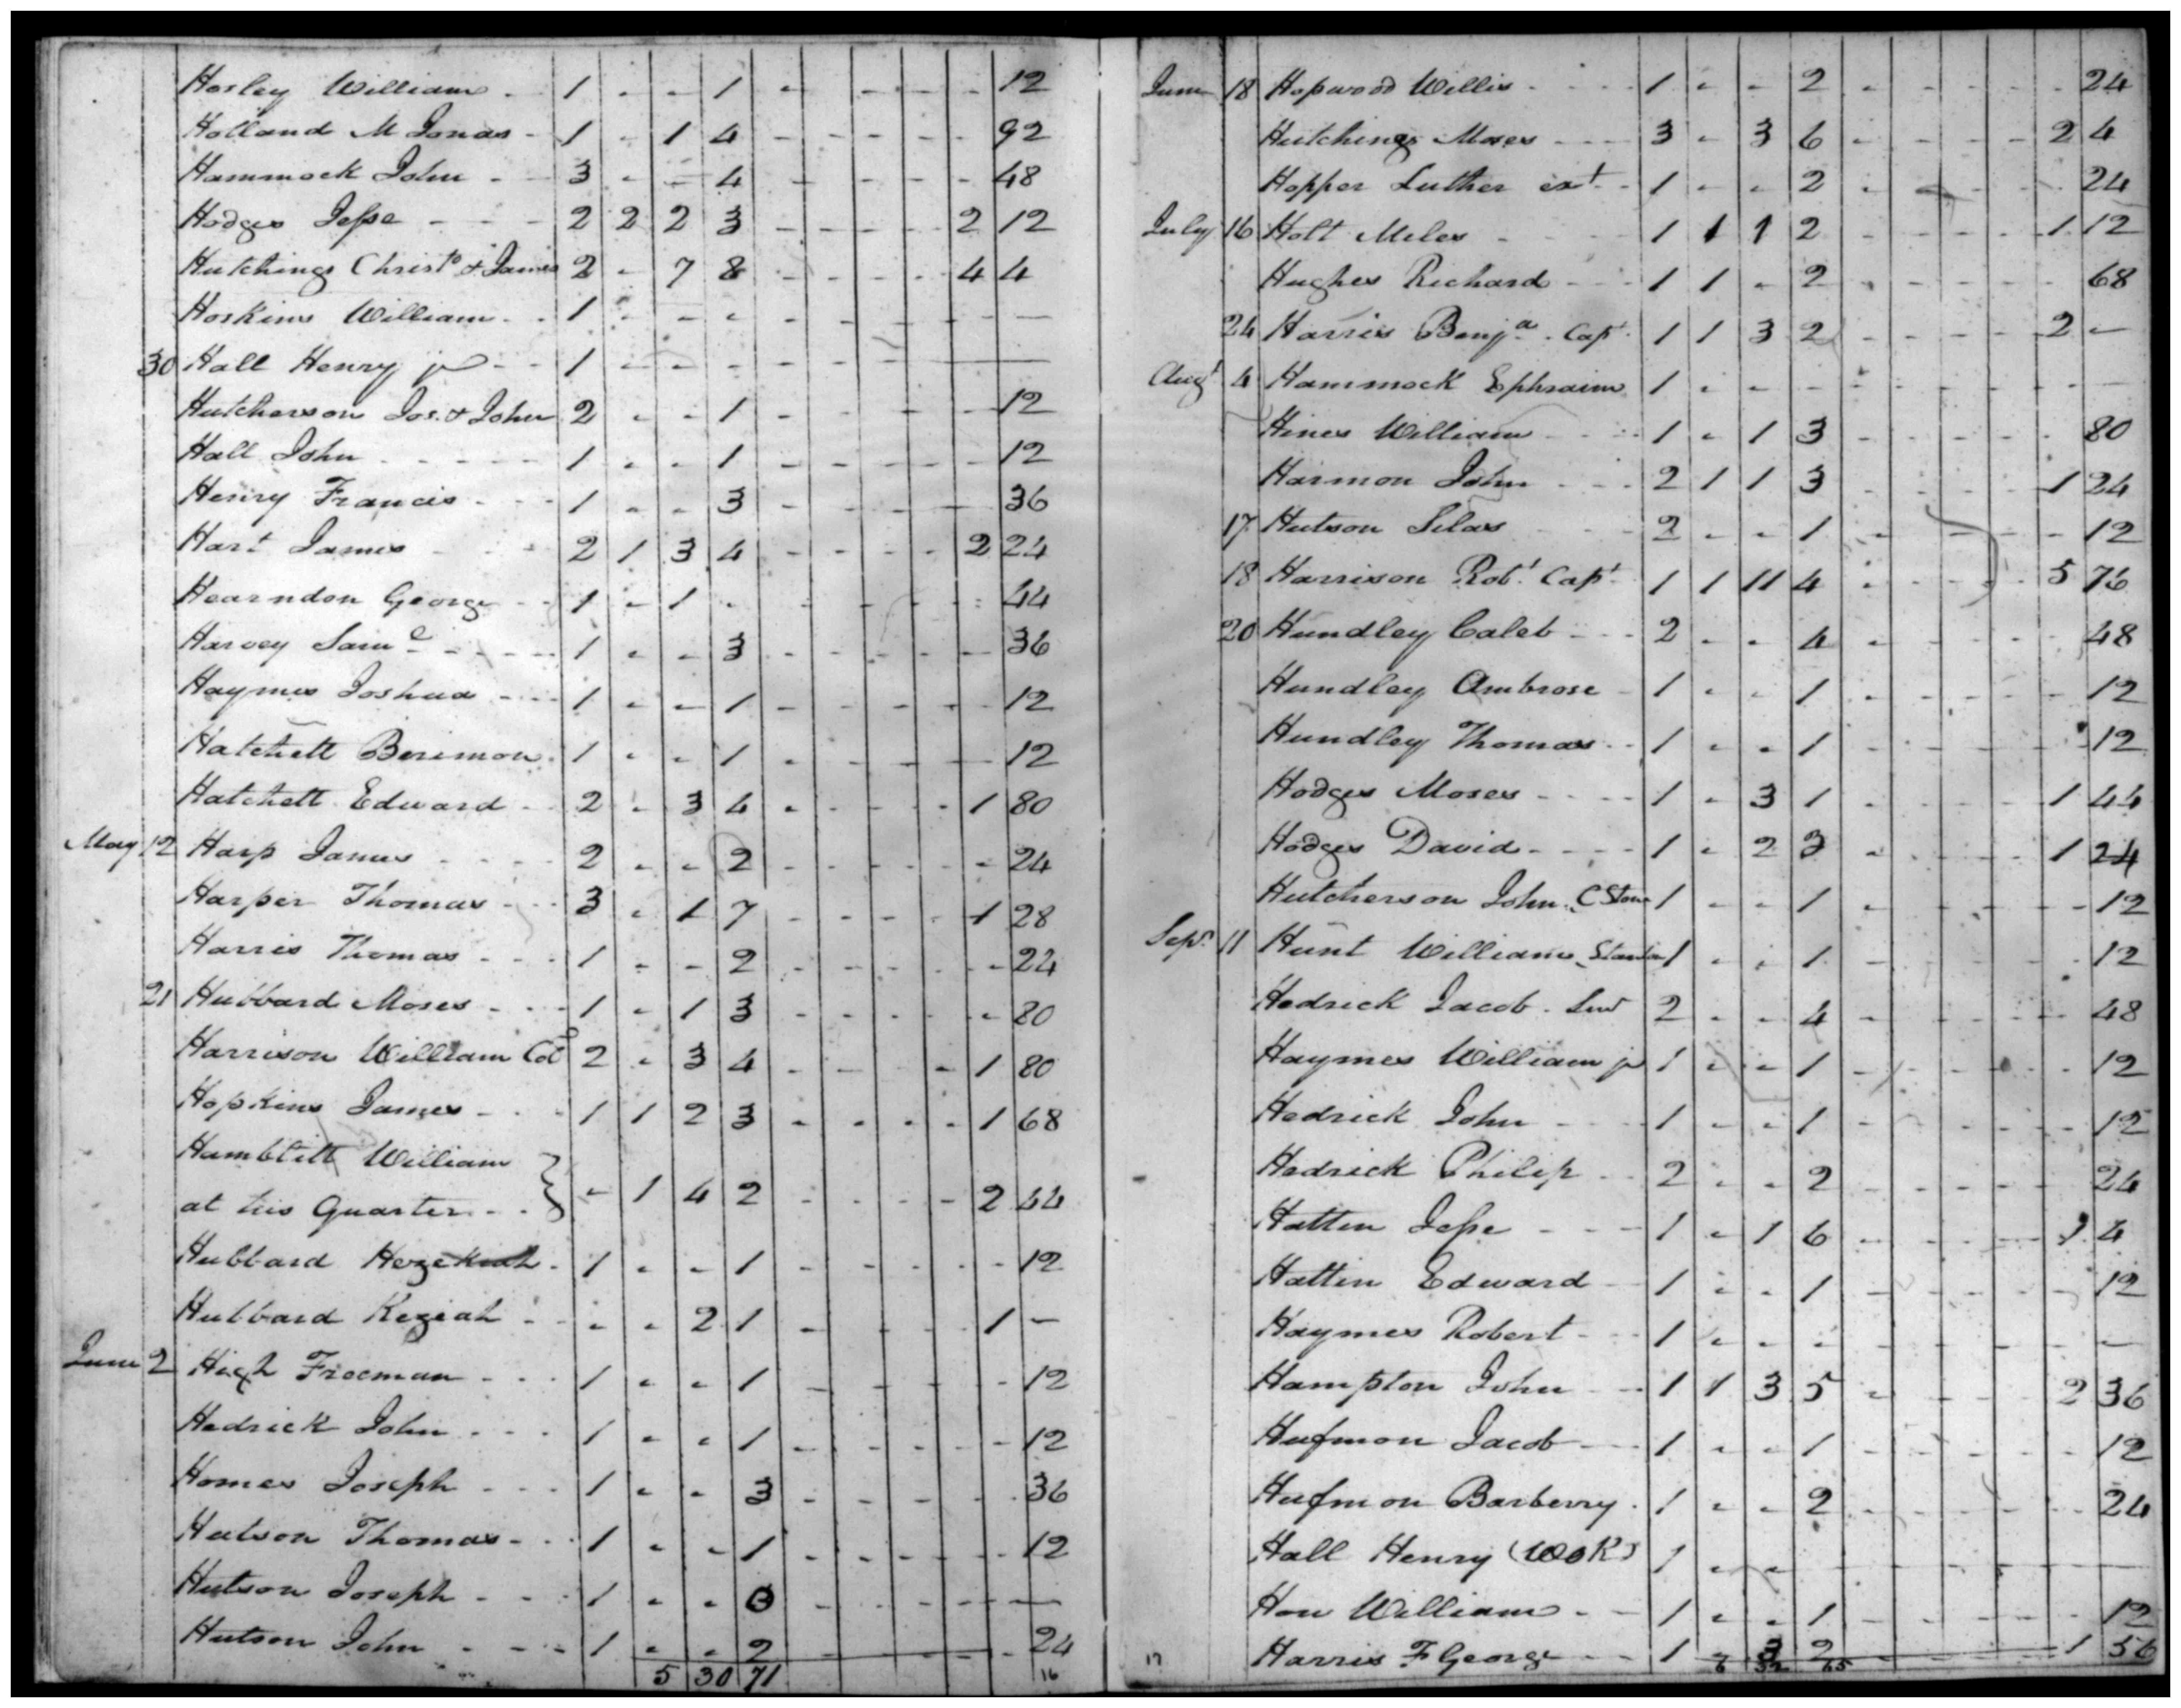 Hosley William - 1 - - 1 - - - - - 12
Holland M Jonas - 1 - 1 4 - - - - - 92
Hammock John - - 3 - - 4 - - - - - 48
Hodges Jesse - - - 2 2 2 3 - - - - 2 12
Hutchings Christo. & James 2 - 7 8 - - - - 4 4
Hoskins William - - 1 - - - - - - - - —
30 Hall Henry jr - - 1 - - - - - - —
Hutcherson Jos. & John 2 - - 1 - - - - - 12
Hall John - - - - - 1 - - 1 - - - - - 12
Henry Francis - - - 1 - - 3 - - - - - 36
Hart James - - - 2 1 3 4 - - - - 2 24
Hearndon George - - 1 - 1 - - - - - - 44
Harvey Saml. - - - - 1 - - 3 - - - - - 36
Haymes Joshua - - - 1 - - 1 - - - - - 12
Hatchett Berimon - 1 - - 1 - - - - - 12
Hatchett Edward - - 2 - 3 4 - - - - 1 80
May 12 Harp James - - - - 2 - - 2 - - - - - 24
Harper Thomas - - - 3 - 1 7 - - - - 1 28
Harris Thomas - - - 1 - - 2 - - - - - 24
21 Hubbard Moses - - - 1 - 1 3 - - - - - 80
Harrison William Col 2 - 3 4 - - - - 1 80
Hopkins James - - - 1 1 2 3 - - - - 1 68
Hamblett William }
at his Quarter - - } - 1 4 2 - - - - 2 44
Hubbard Hezekiah - 1 - - 1 - - - - - 12
Hubbard Keziah - - - - 2 1 - - - - 1 —
June 2 High Freeman - - - 1 - - 1 - - - - - 12
Hedrick John - - - 1 - - 1 - - - - - 12
Homes Joseph - - - 1 - - 3 - - - - - 36
Hutson Thomas - - 1 - - 1 - - - - - 12
Hutson Joseph - - - 1 - - 0 - - - - - —
Hutson John - - - 1 - - 2 - - - - - 24
5 30 71 16
June 18 Hopwood Willis - - - - 1 - - 2 - - - - - 24
Hutchings Moses - - - 3 - 3 6 - - - - 2 4
Hopper Luther ext. - 1 - - 2 - - - - - 24
July 16 Holt Miles - - - - 1 1 1 2 - - - - 1 12
Hughes Richard - - - 1 1 - 2 - - - - - 68
24 Harris Benja. Capt. 1 1 3 2 - - - - 2 —
Augt 4 Hammock Ephraim 1 - - - - - - - - —
Hines William - - - 1 - 1 3 - - - - - 80
Harmon John - - - 2 1 1 3 - - - - 1 24
17 Hutson Silas - - - 2 - - 1 - - - - - 12
18 Harrison Robt. Capt. 1 1 11 4 - - - - 5 76
20 Hundley Caleb - - - 2 - - 4 - - - - - 48
Hundley Ambrose - 1 - - 1 - - - - - 12
Hundley Thomas - - 1 - - 1 - - - - - 12
Hodges Moses - - - - 1 - 3 1 - - - - 1 44
Hodges David - - - - 1 - 2 3 - - - - 1 24
Hutcherson John C Stone 1 - - 1 - - - - - 12
Sepr. 11 Hunt William 1 - - 1 - - - - - 12
Hedrick Jacob 2 - - 4 - - - - - 48
Haymes William jr 1 - - 1 - - - - - 12
Hedrick John - - - 1 - - 1 - - - - - 12
Hedrick Philip - - 2 - - 2 - - - - - 24
Hatten Jesse - - - 1 - 1 6 - - - - 1 4
Hatten Edward - - 1 - - 1 - - - - - 12
Haymes Robert - - 1 - - - - - - - - —
Hampton John - - 1 1 3 5 - - - - 2 36
Hufmon Jacob - - - 1 - - 1 - - - - - 12
Hufmon Barberry - 1 - - 2 - - - - - 24
Hall Henry 1 - -
Hon William - - 1 - - 1 - - - - - 12
17 Harris F George - - 1 - 3 2 - - - - 1 56
6 32 65